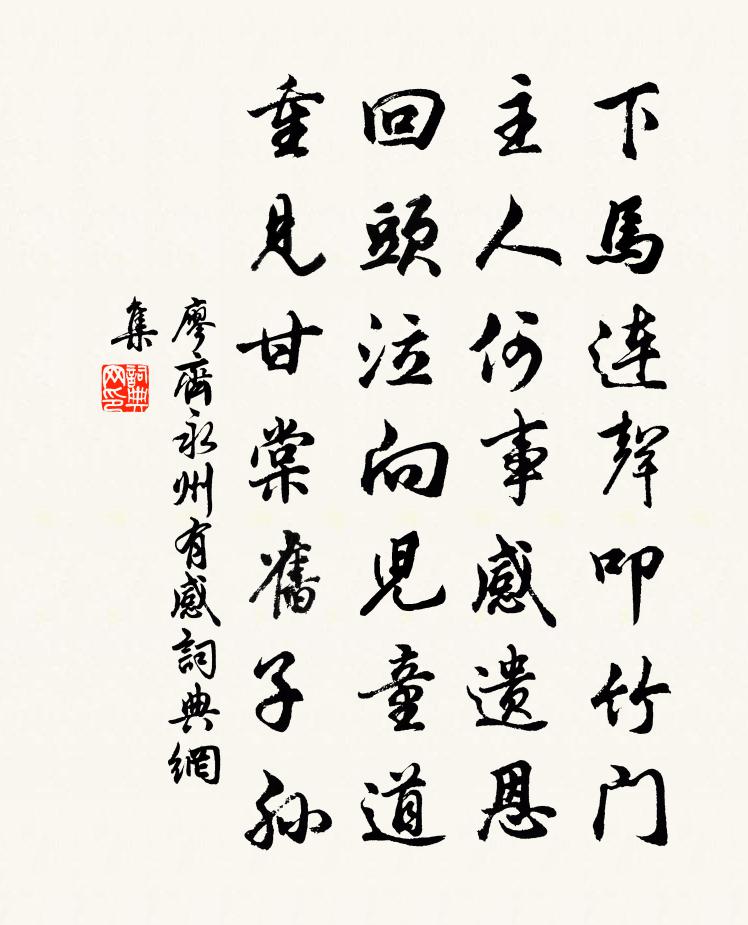 下馬連聲叩竹门
主人何事感遺恩
回頭泣向児童道
重見甘棠舊子孫
廖齊永州有感詞典網
集
詞典
网印